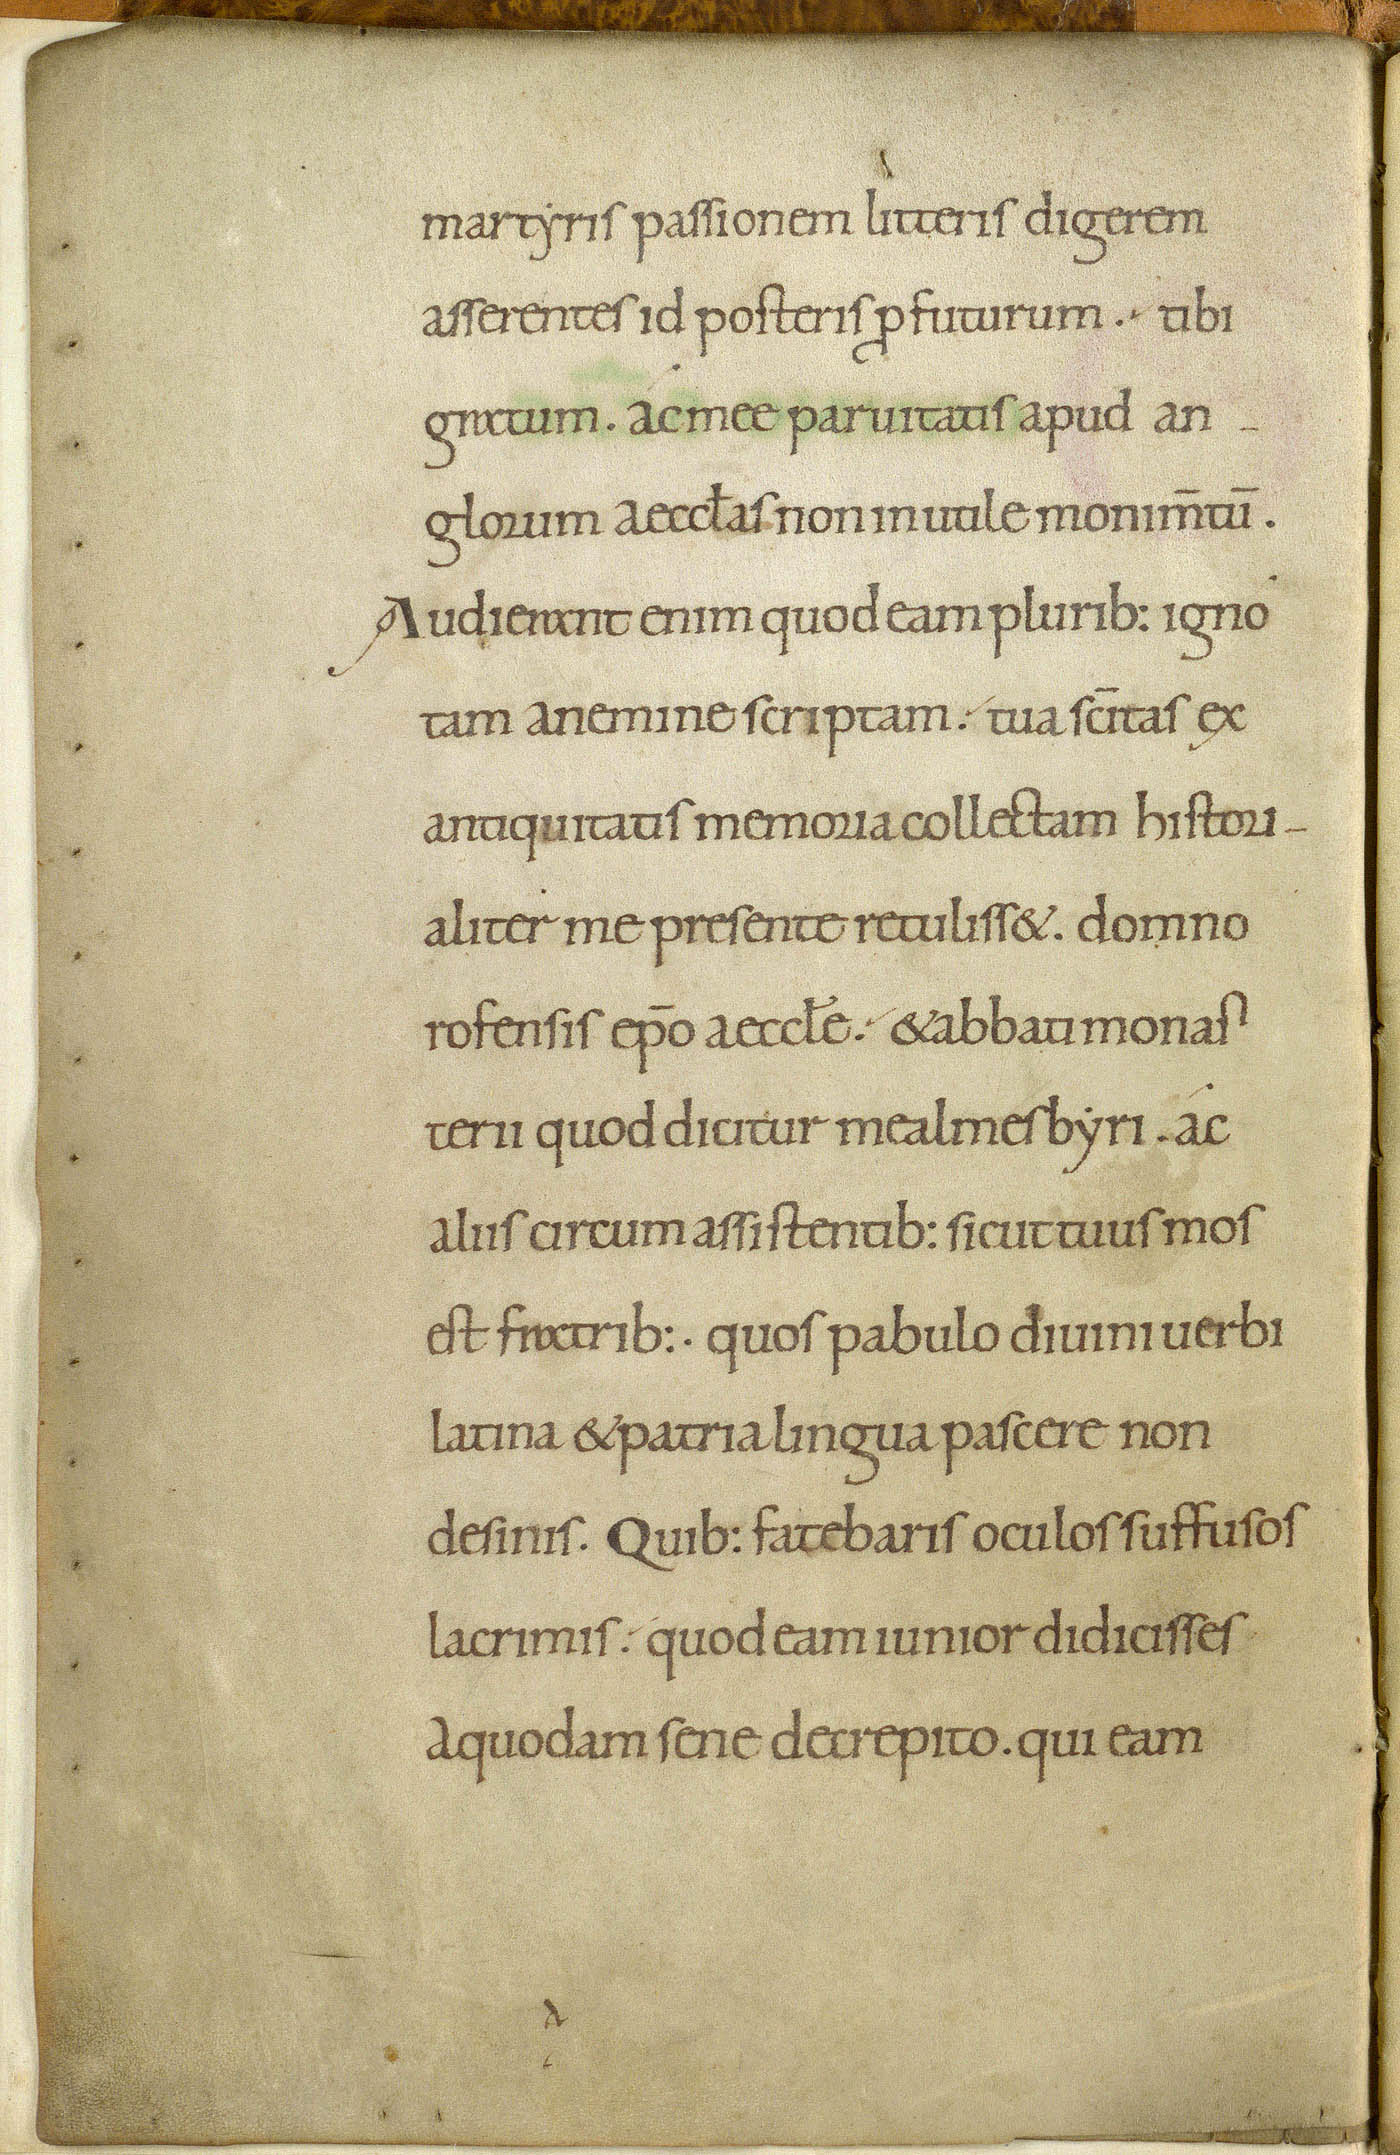 martẏris passionem litteris digerem
asserentes id posteris ꝓfuturum. tibi
gratum. ác mee paruitatis apud an-
glorum aeccłas non inutile monim̄tū.
Audierant enim quod eam plurib: igno
tam anemine scriptam. tua sc̄itas ex
antiquitatis memoria collectam histori-
aliter me presente retuliss&. domno
rofensis ep̄o aeccłe. & abbati monas
terii quod dicitur mealmesbẏri. ác
aliis circum assistentib: sicut tuus mos
est fratrib:. quos pabulo diuini uerbi
latina & patria lingua pascere non
desinis. Quib: fatebaris oculos suffusos
lacrimis. quod eam iunior didicisses
aquodam sene decrepito. qui eam